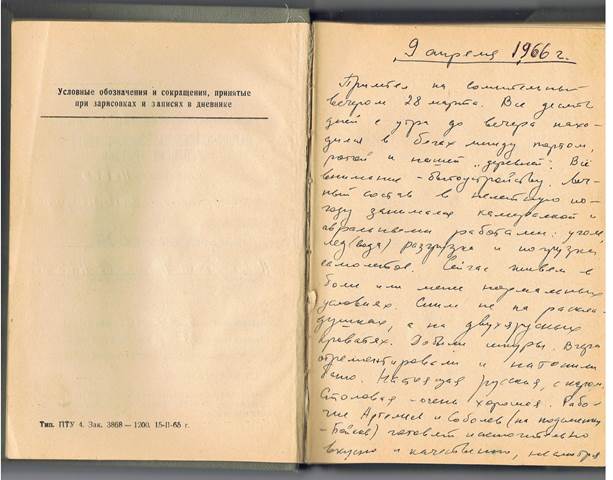 Условные обозначения и сокращения, принятые
при зарисовках и записях в дневнике
Тип. ПТУ 4. Зак. 3868—1200. 15-II-65 г.
9 апреля 1966 г.
на
вечером 28 марта. Все десять
дней с утра до вечера нахо-
дился в бегах между портом,
ротой и нашей „деревней". Всё
внимание - бытоустройству. Лич-
ный состав в нелетную по-
году занимался камералкой и
авральными работами: уголь,
лед (вода) разгрузка и погрузка
самолетов. Сейчас живем в
боли или мене нормальных
условиях. Спим не на раскла-
душках, а на двухярусных
кроватях. Добыли шкуры. Вчера
отремонтировали и натопили
баню. Настоящая русская, с паром.
Столовая - очень хорошая. Рабо-
чие Артемьев и Соболев (на подменку
- Бойцов) готовят исключительно
вкусно и качественно, несмотря